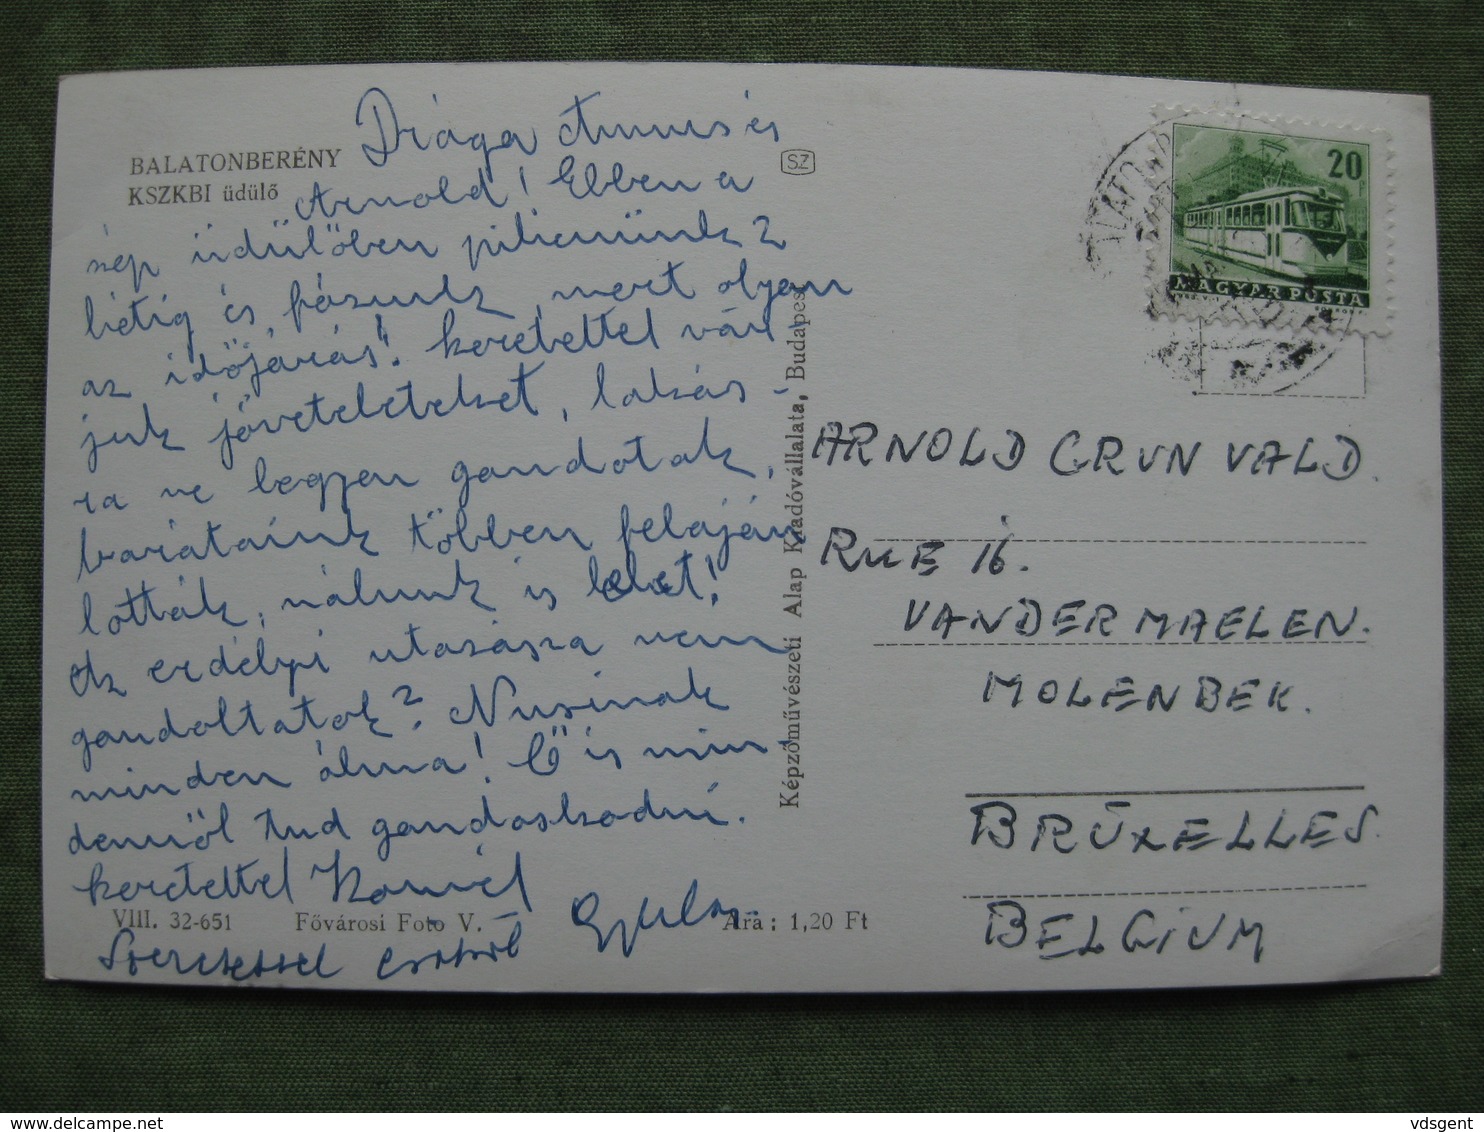 BALATONBERÉNY
KSZKBI üdülő
Drága Annus és
Arnold! Ebben a
szép üdülőben pihenünk 2
hétig és fázunk, mert olyan
az időjárás! Szeretettel vár-
juk jöveteleteket, lakás-
ra ne legyen gondotok,
barátaink többen felaján
lották, nálunk is lehet!
Az erdélyi utazásra nem
gondoltatok? Nusinak
minden álma! Ő is min
denről tud gondoskodni.
Szeretettel
VIII. 32-651 Fővárosi Foto V. Ára : 1,20 Ft
Szeretettel csókol Gyula
SZ
Képzőművészeti Alap Kiadóvállalata, Budapest
20
MAGYAR POSTA
ARNOLD GRUNVALD.
RUE 16.
VANDERMAELEN.
MOLENBEK.
BRÜXELLES.
BELGIUM
vdsgent delcampe.net